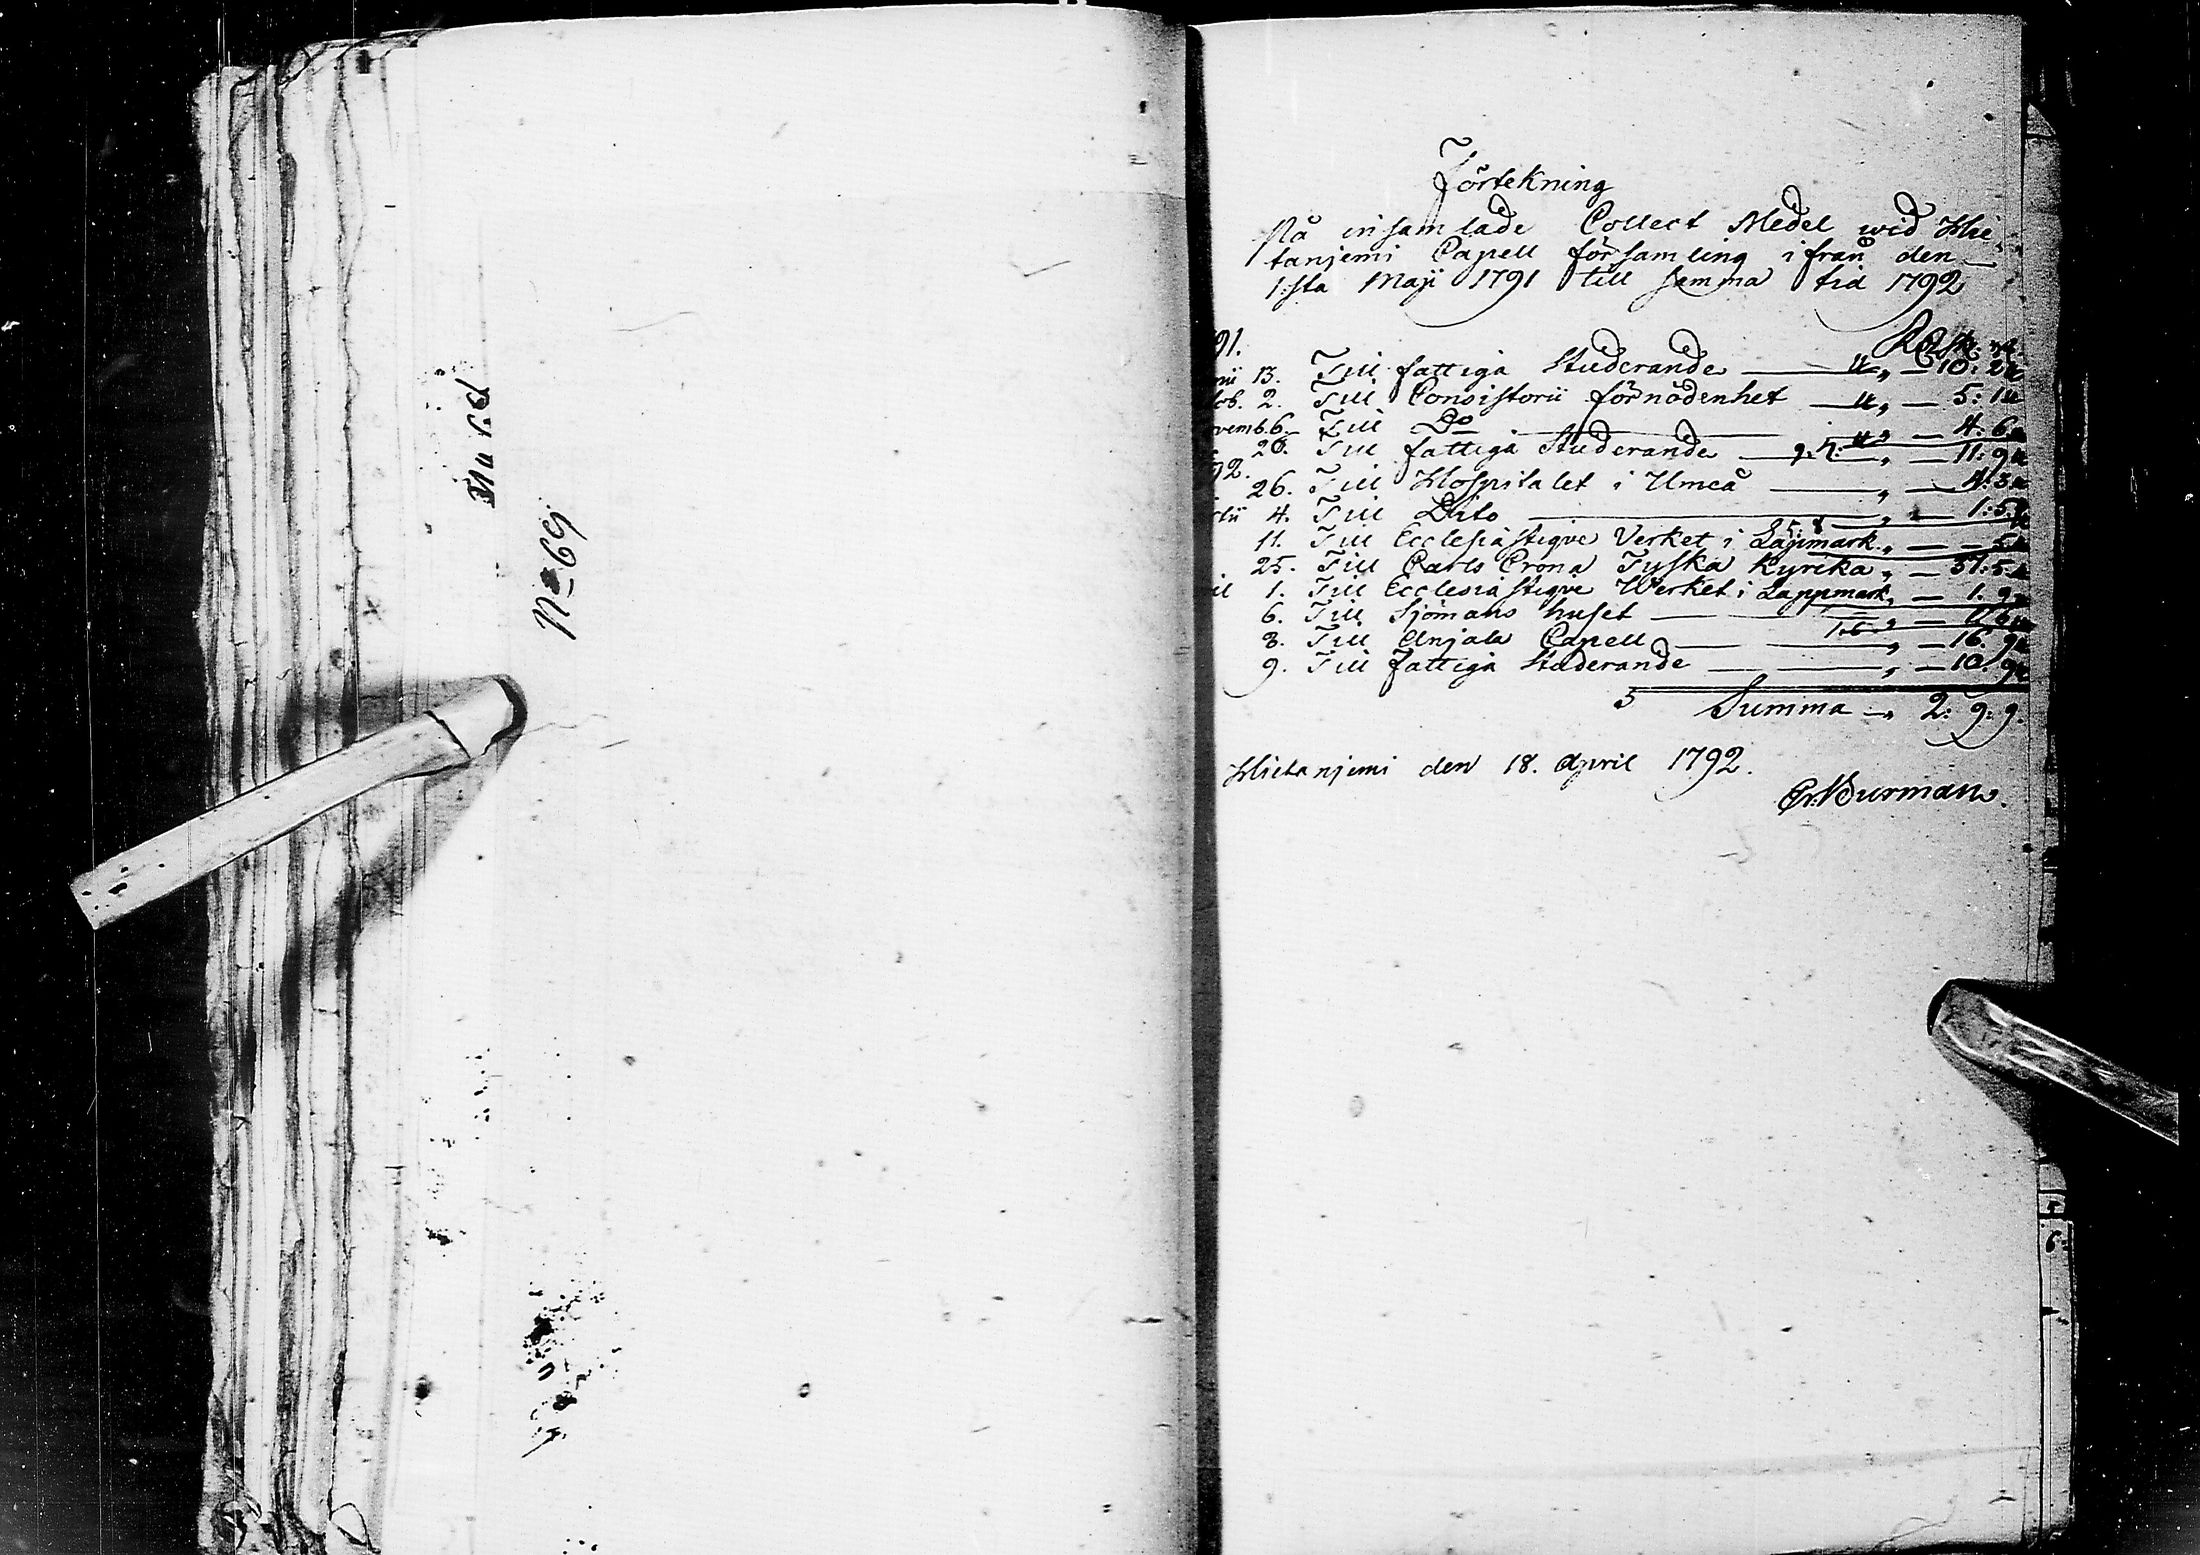 No 69.
Förtekning
På insamlade Collect Medel wid Hie-
tanjemi Capell församling ifrån den
1:sta Maji 1791 till samma tid 1792
91.
Rd sk. rst.
13. Till fattiga Studerande " — 10: 2
ob. 2. Till Consistorii förnödenhet " — 5: 1
vemb. 6. Till Do " — 4. 6
26. Till fattiga Studerande 9. 7. " — 11: 9
92.
26. Till Hospitalet i Umeå " — 4: 3
4. Till Dito " — 1: 5.
5: 8
11. Till Ecclesiastiqve Verket i Lappmark. " — 5
25. Till Carls Crona Tyska Kyrka " — 31: 5.
il 1. Till Ecclesiastiqve Werket i Lappmark " — 1. 9
6. Till Sjömans huset — 1. 6
8. Till Anjala Capell " — 16. 9
9. Till Fattiga Studerande " — 10. 9
5 Summa — 2: 9: 9.
Hietanjemi den 18. April 1792.
Er. Burman.